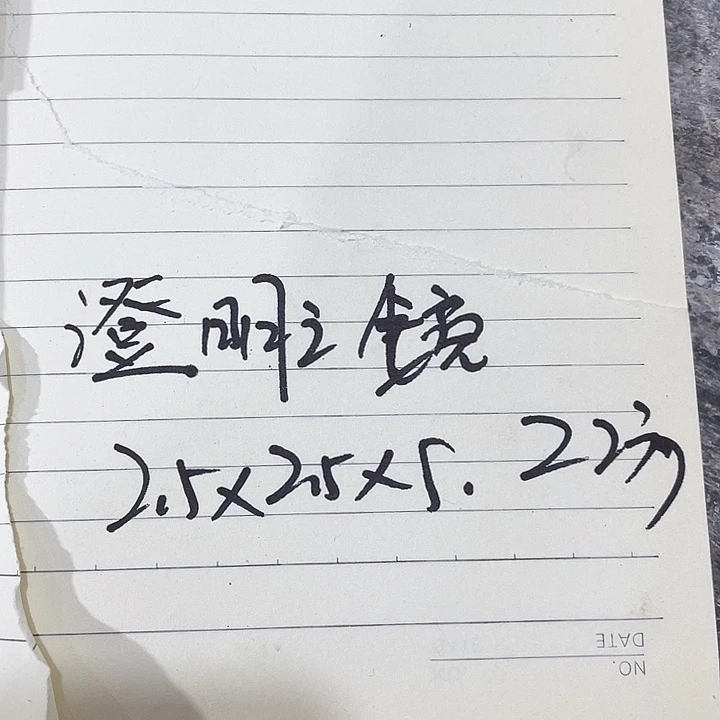 澄明之镜
2.5×2.5×5. 22方
DATE
NO.